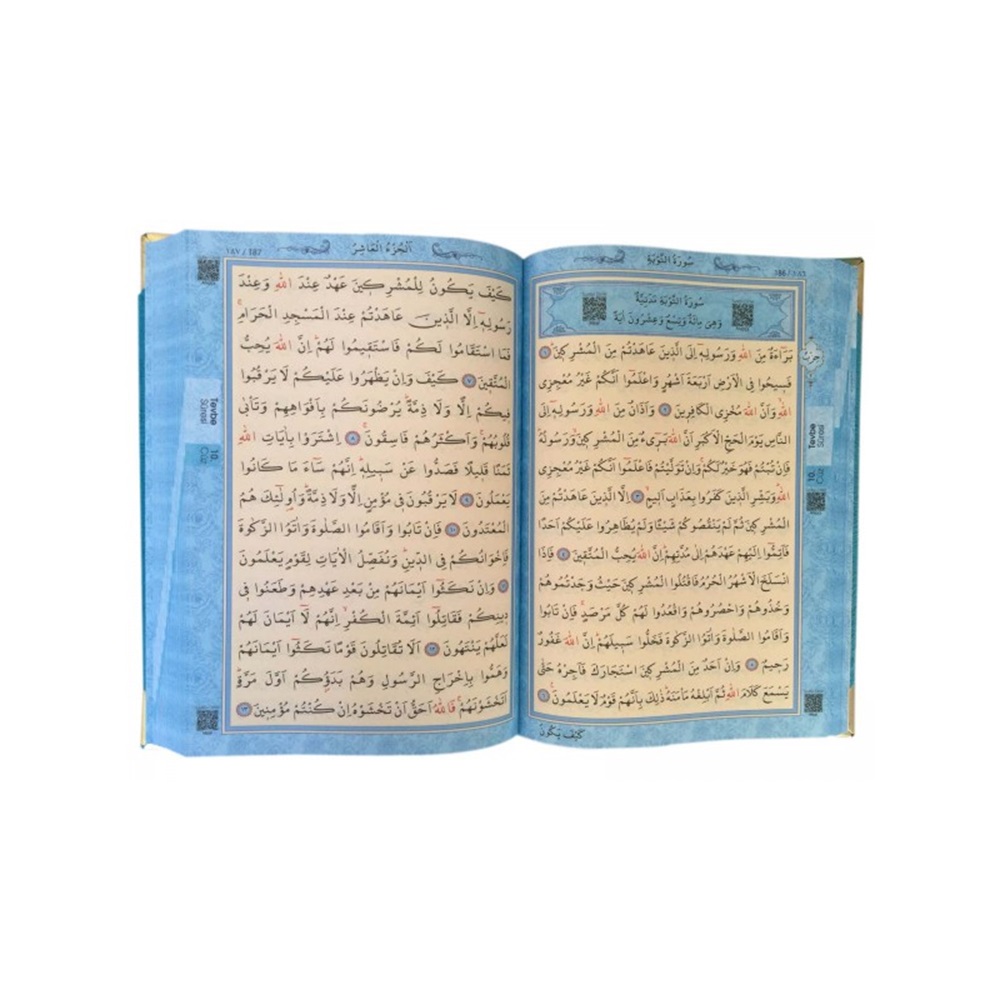 سُورَةُ التَّوْبَةِ
186 / ١٨٦
سُورَةُ التَّوْبَةِ مَدَنِيَّةٌ
وَهِىَ مِائَةٌ وَتِسْعٌ وَعِشْرُونَ اٰيَةً
بَرَٓاءَةٌ مِنَ اللّٰهِ وَرَسُولِه۪ٓ اِلَى الَّذ۪ينَ عَاهَدْتُمْ مِنَ الْمُشْرِك۪ينَۜ ﴿١﴾
فَس۪يحُوا فِي الْاَرْضِ اَرْبَعَةَ اَشْهُرٍ وَاعْلَمُٓوا اَنَّكُمْ غَيْرُ مُعْجِزِي
اللّٰهِۙ وَاَنَّ اللّٰهَ مُخْزِي الْكَافِر۪ينَ ﴿٢﴾ وَاَذَانٌ مِنَ اللّٰهِ وَرَسُولِه۪ٓ اِلَى
النَّاسِ يَوْمَ الْحَجِّ الْاَكْبَرِ اَنَّ اللّٰهَ بَر۪ٓيءٌ مِنَ الْمُشْرِك۪ينَۙ وَرَسُولُهُۜ
فَاِنْ تُبْتُمْ فَهُوَ خَيْرٌ لَكُمْۚ وَاِنْ تَوَلَّيْتُمْ فَاعْلَمُٓوا اَنَّكُمْ غَيْرُ مُعْجِزِي
اللّٰهِۜ وَبَشِّرِ الَّذ۪ينَ كَفَرُوا بِعَذَابٍ اَل۪يمٍۙ ﴿٣﴾ اِلَّا الَّذ۪ينَ عَاهَدْتُمْ مِنَ
الْمُشْرِك۪ينَ ثُمَّ لَمْ يَنْقُصُوكُمْ شَيْـًٔا وَلَمْ يُظَاهِرُوا عَلَيْكُمْ اَحَدًا
فَاَتِمُّٓوا اِلَيْهِمْ عَهْدَهُمْ اِلٰى مُدَّتِهِمْۜ اِنَّ اللّٰهَ يُحِبُّ الْمُتَّق۪ينَ ﴿٤﴾ فَاِذَا
انْسَلَخَ الْاَشْهُرُ الْحُرُمُ فَاقْتُلُوا الْمُشْرِك۪ينَ حَيْثُ وَجَدْتُمُوهُمْ
وَخُذُوهُمْ وَاحْصُرُوهُمْ وَاقْعُدُوا لَهُمْ كُلَّ مَرْصَدٍۚ فَاِنْ تَابُوا
وَاَقَامُوا الصَّلٰوةَ وَاٰتَوُا الزَّكٰوةَ فَخَلُّوا سَب۪يلَهُمْۜ اِنَّ اللّٰهَ غَفُورٌ
رَح۪يمٌ ﴿٥﴾ وَاِنْ اَحَدٌ مِنَ الْمُشْرِك۪ينَ اسْتَجَارَكَ فَاَجِرْهُ حَتّٰى
يَسْمَعَ كَلَامَ اللّٰهِ ثُمَّ اَبْلِغْهُ مَأْمَنَهُۜ ذٰلِكَ بِاَنَّهُمْ قَوْمٌ لَا يَعْلَمُونَ۟ ﴿٦﴾
كَيْفَ يَكُونُ
حِزْبٌ
Tevbe
Sûresi
10.
Cüz
اَلْجُزْءُ الْعَاشِرُ
١٨٧ / 187
كَيْفَ يَكُونُ لِلْمُشْرِك۪ينَ عَهْدٌ عِنْدَ اللّٰهِ وَعِنْدَ
رَسُولِه۪ٓ اِلَّا الَّذ۪ينَ عَاهَدْتُمْ عِنْدَ الْمَسْجِدِ الْحَرَامِۚ
فَمَا اسْتَقَامُوا لَكُمْ فَاسْتَق۪يمُوا لَهُمْۜ اِنَّ اللّٰهَ يُحِبُّ
الْمُتَّق۪ينَ ﴿٧﴾ كَيْفَ وَاِنْ يَظْهَرُوا عَلَيْكُمْ لَا يَرْقُبُوا
ف۪يكُمْ اِلًّا وَلَا ذِمَّةًۜ يُرْضُونَكُمْ بِاَفْوَاهِهِمْ وَتَأْبٰى
قُلُوبُهُمْۚ وَاَكْثَرُهُمْ فَاسِقُونَۚ ﴿٨﴾ اِشْتَرَوْا بِاٰيَاتِ اللّٰهِ
ثَمَنًا قَل۪يلًا فَصَدُّوا عَنْ سَب۪يلِه۪ۜ اِنَّهُمْ سَٓاءَ مَا كَانُوا
يَعْمَلُونَ ﴿٩﴾ لَا يَرْقُبُونَ ف۪ي مُؤْمِنٍ اِلًّا وَلَا ذِمَّةًۜ وَاُو۬لٰٓئِكَ هُمُ
الْمُعْتَدُونَ ﴿١٠﴾ فَاِنْ تَابُوا وَاَقَامُوا الصَّلٰوةَ وَاٰتَوُا الزَّكٰوةَ
فَاِخْوَانُكُمْ فِي الدّ۪ينِۜ وَنُفَصِّلُ الْاٰيَاتِ لِقَوْمٍ يَعْلَمُونَ
﴿١١﴾ وَاِنْ نَكَثُٓوا اَيْمَانَهُمْ مِنْ بَعْدِ عَهْدِهِمْ وَطَعَنُوا ف۪ي
د۪ينِكُمْ فَقَاتِلُٓوا اَئِمَّةَ الْكُفْرِۙ اِنَّهُمْ لَٓا اَيْمَانَ لَهُمْ
لَعَلَّهُمْ يَنْتَهُونَ ﴿١٢﴾ اَلَا تُقَاتِلُونَ قَوْمًا نَكَثُٓوا اَيْمَانَهُمْ
وَهَمُّوا بِاِخْرَاجِ الرَّسُولِ وَهُمْ بَدَؤُ۫كُمْ اَوَّلَ مَرَّةٍۜ
اَتَخْشَوْنَهُمْۚ فَاللّٰهُ اَحَقُّ اَنْ تَخْشَوْهُ اِنْ كُنْتُمْ مُؤْمِن۪ينَ ﴿١٣﴾
Tevbe
Sûresi
10.
Cüz